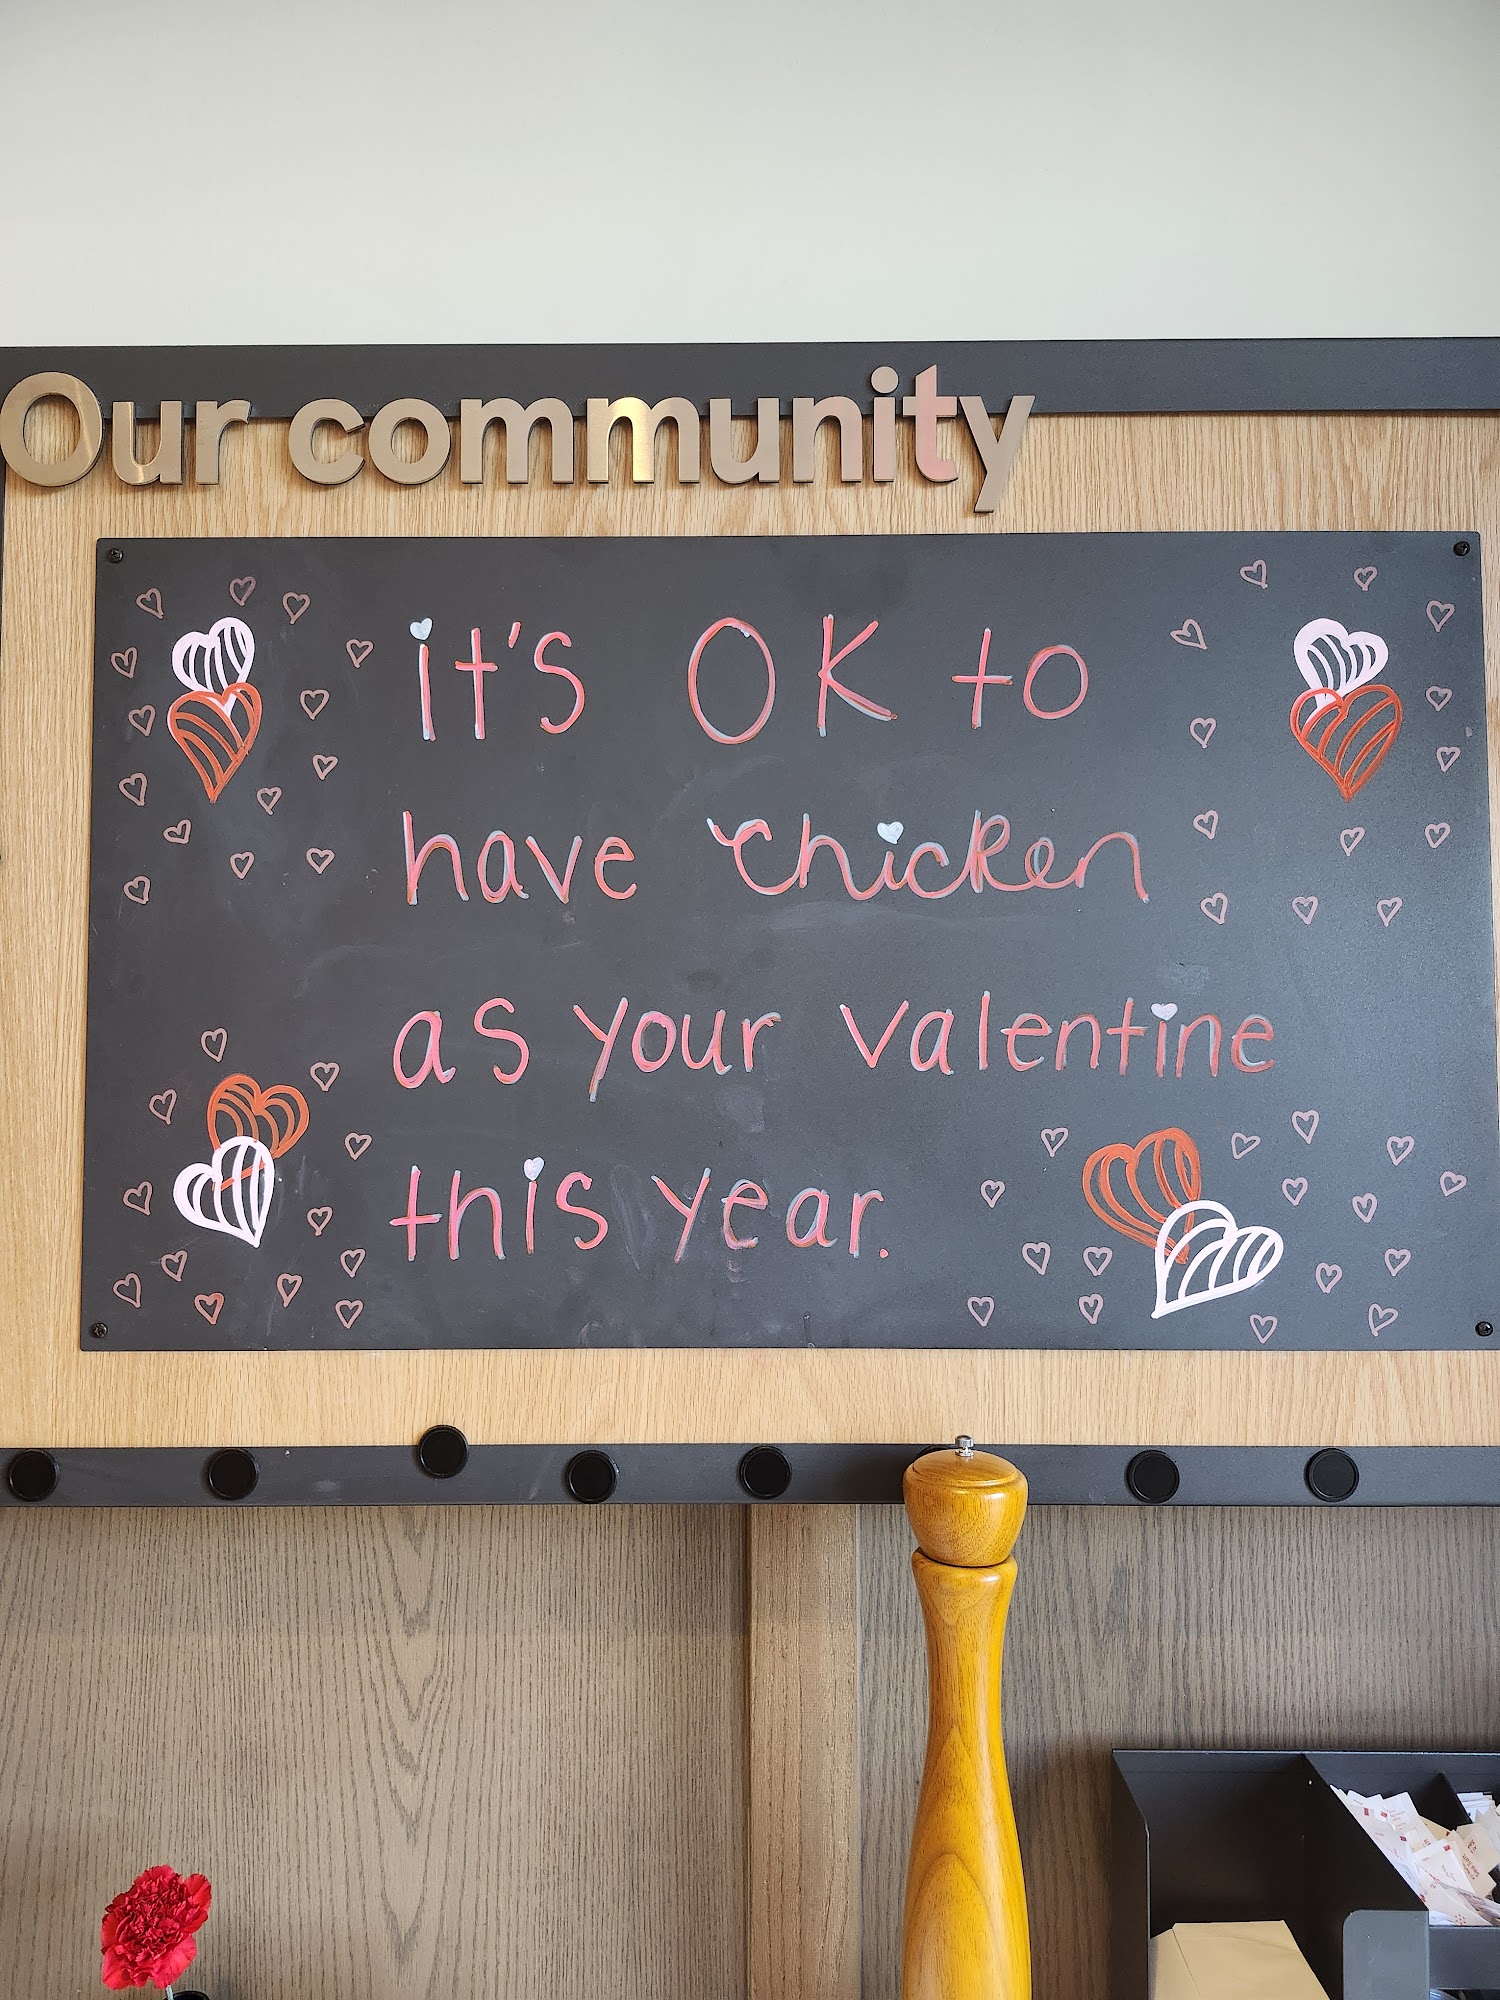 Our community
it's OK to
have chicken
as your valentine
this year.